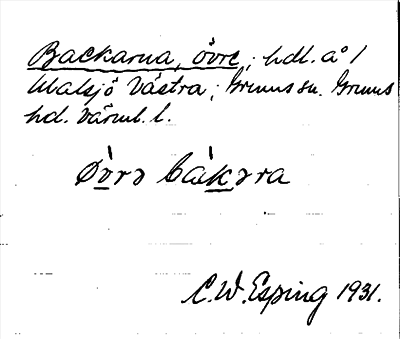 Backarna, övre; hdl. å 1
Malsjö Västra; Grums sn. Grums
hd. Värml. l.
Ø̀vrə bàkəra
C. W. Esping 1931.